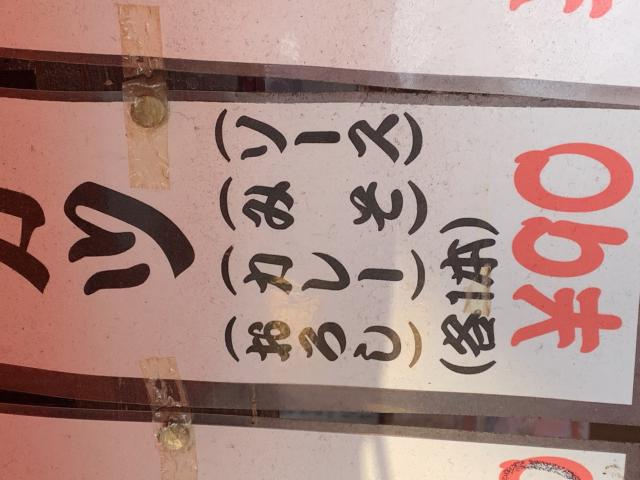 カツ
(ソース)
(みそ)
(カレー)
(おろし)
(各1本)
¥90